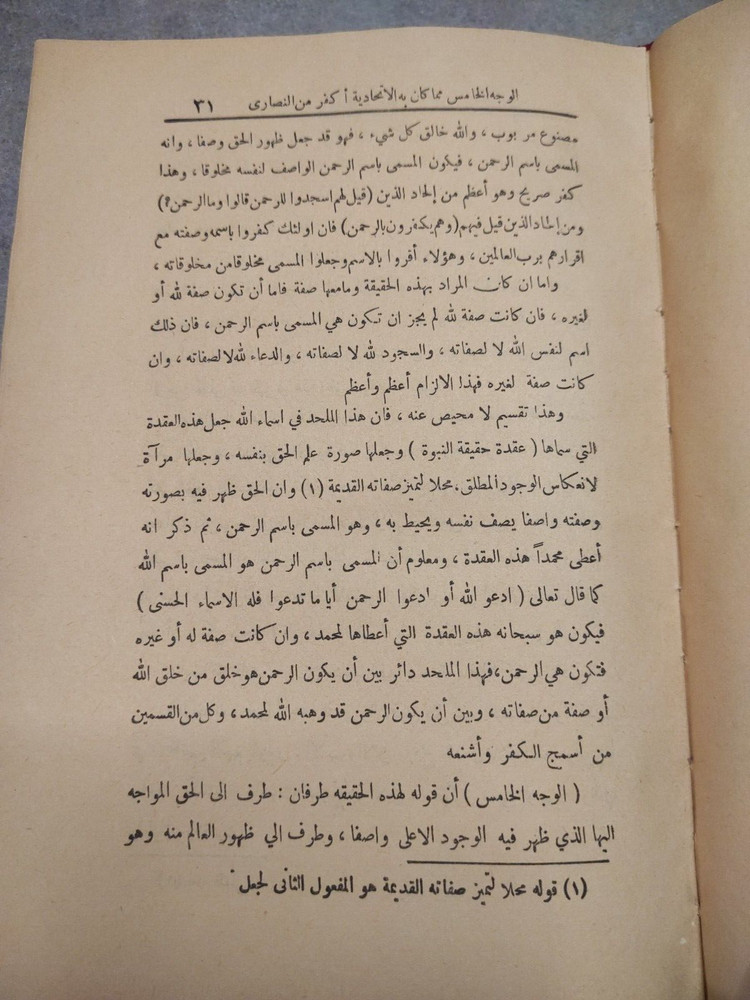 الوجه الخامس مما كان به الاتحادية أكفر من النصارى ٣١
مصنوع مربوب ، والله خالق كل شيء ، فهو قد جعل ظهور الحق وصفا ، وانه
المسمى باسم الرحمن ، فيكون المسمى باسم الرحمن الواصف لنفسه مخلوقا ، وهذا
كفر صريح وهو أعظم من إلحاد الذين (قيل لهم اسجدوا للرحمن قالوا وما الرحمن؟)
ومن إلحاد الذين قيل فيهم (وهم يكفرون بالرحمن) فان اولئك كفروا باسمه وصفته مع
اقرارهم برب العالمين ، وهؤلاء أقروا بالاسم وجعلوا المسمى مخلوقا من مخلوقاته ،
واما ان كان المراد بهذه الحقيقة وما معها صفة فاما أن تكون صفة لله أو
لغيره ، فان كانت صفة لله لم يجز ان تكون هي المسمى باسم الرحمن ، فان ذلك
اسم لنفس الله لا لصفاته ، والسجود لله لا لصفاته ، والدعاء لله لا لصفاته ، وان
كانت صفة لغيره فهذا الالزام أعظم وأعظم
وهذا تقسيم لا محيص عنه ، فان هذا الملحد في اسماء الله جعل هذه العقدة
التي سماها ( عقدة حقيقة النبوة ) وجعلها صورة علم الحق بنفسه ، وجعلها مرآة
لانعكاس الوجود المطلق ، محلا لتميز صفاته القديمة (١) وان الحق ظهر فيه بصورته
وصفته واصفا يصف نفسه ويحيط به ، وهو المسمى باسم الرحمن ، ثم ذكر انه
أعطى محمداً هذه العقدة ، ومعلوم أن المسمى باسم الرحمن هو المسمى باسم الله
كما قال تعالى ( ادعو الله أو ادعوا الرحمن أيا ما تدعوا فله الاسماء الحسنى )
فيكون هو سبحانه هذه العقدة التي أعطاها لمحمد ، وان كانت صفة له أو غيره
فتكون هي الرحمن ، فهذا الملحد دائر بين أن يكون الرحمن هو خلق من خلق الله
أو صفة من صفاته ، وبين أن يكون الرحمن قد وهبه الله لمحمد ، وكل من القسمين
من أسمج الكفر وأشنعه
( الوجه الخامس ) أن قوله لهذه الحقيقه طرفان : طرف الى الحق المواجه
اليها الذي ظهر فيه الوجود الاعلى واصفا ، وطرف الي ظهور العالم منه وهو
(١) قوله محلا لتميز صفاته القديمة هو المفعول الثانى لجعل